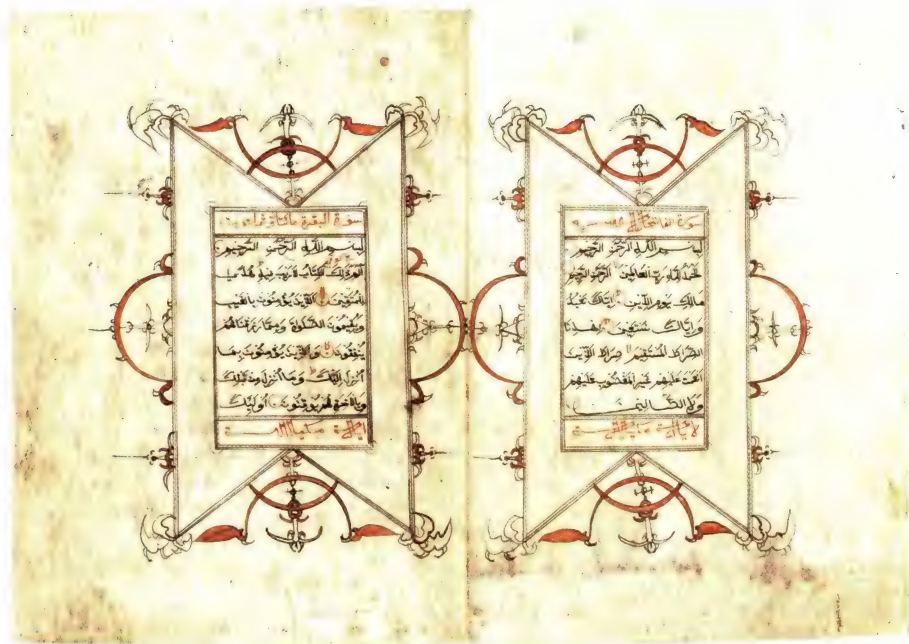 سورة الفاتحة
بسم الله الرحمن الرحيم
الحمد لله رب العالمين الرحمن الرحيم
مالك يوم الدين إياك نعبد
وإياك نستعين اهدنا
الصراط المستقيم صراط الذين
أنعمت عليهم غير المغضوب عليهم
ولا الضالين
سورة البقرة مائتان
بسم الله الرحمن الرحيم
الم ذلك الكتاب لا ريب فيه هدى
للمتقين الذين يؤمنون بالغيب
ويقيمون الصلوة ومما رزقناهم
ينفقون والذين يؤمنون بما
أنزل إليك وما أنزل من قبلك
وبالآخرة هم يوقنون أولئك